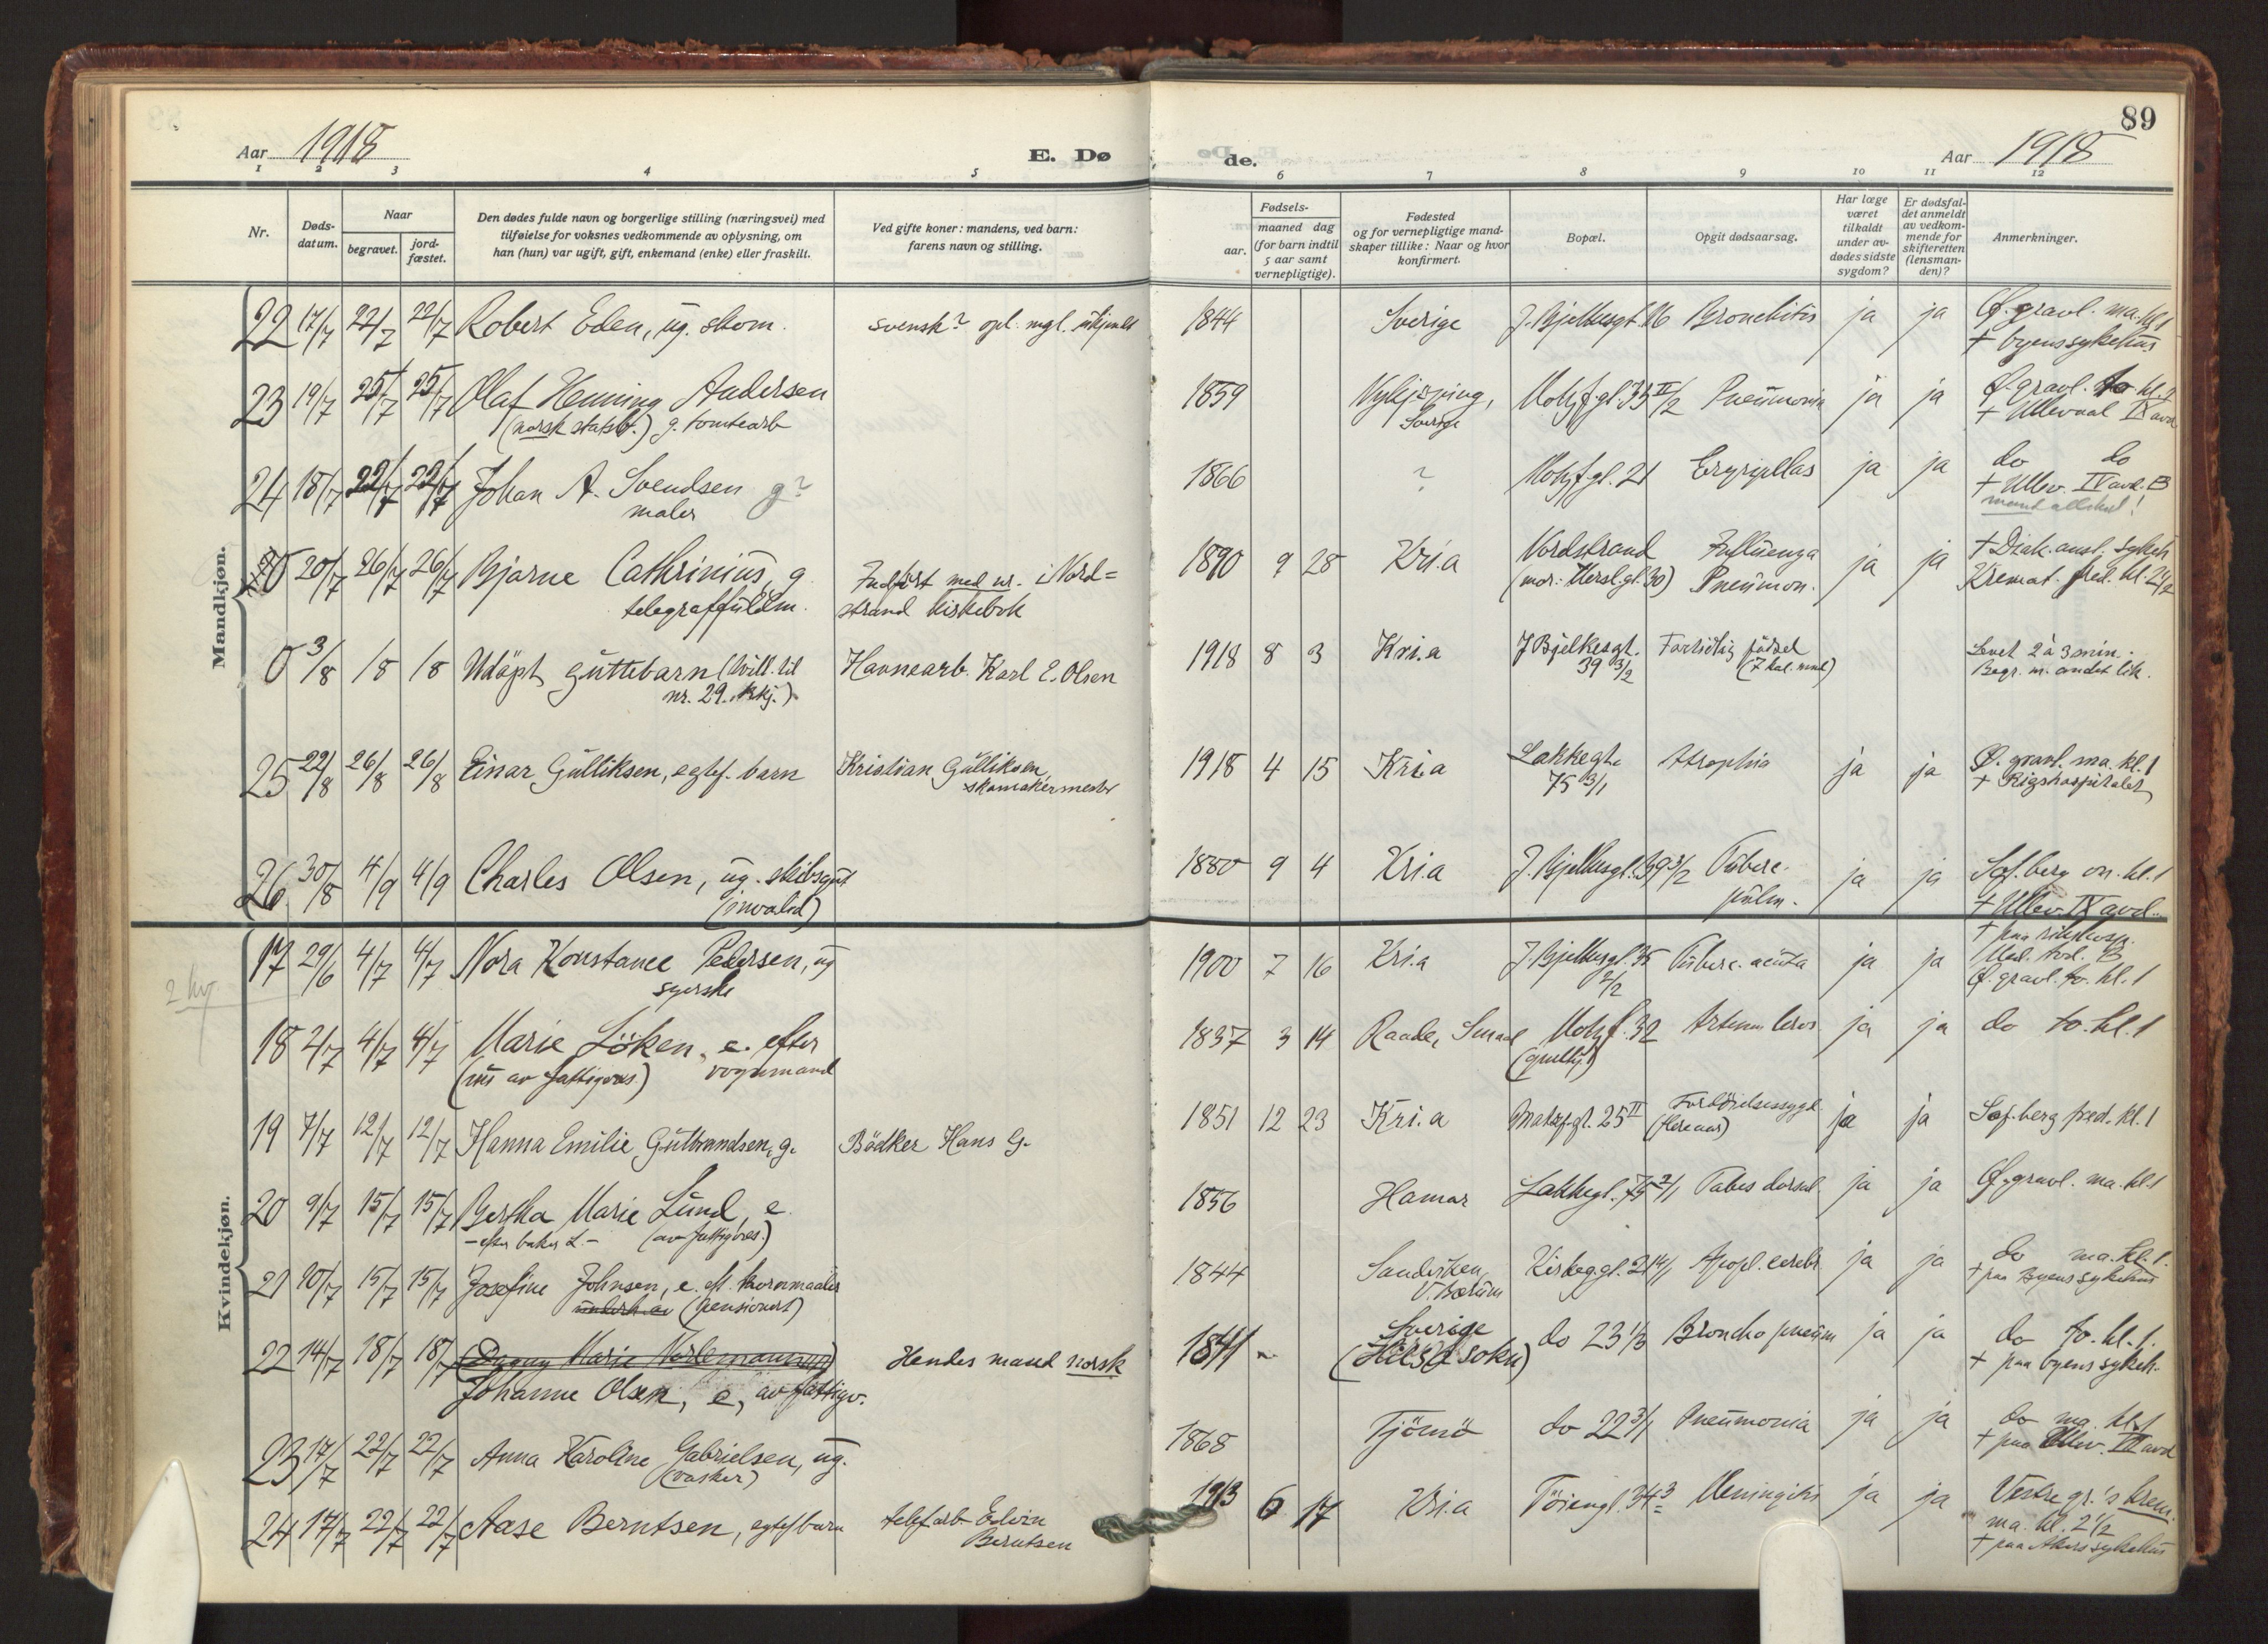 89
Aar 1918
E. Dø
de.
Aar 1918
1 2 3 4 5 6 7 8 9 10 11 12
Nr.
Døds-
datum.
Naar
begravet.
jord-
fæstet.
Den dødes fulde navn og borgerlige stilling (næringsvei) med
tilføielse for voksnes vedkommende av oplysning, om
han (hun) var ugift, gift, enkemand (enke) eller fraskilt.
Ved gifte koner: mandens, ved barn:
farens navn og stilling.
Fødsels-
aar.
maaned dag
(for barn indtil
5 aar samt
vernepligtige).
Fødested
og for vernepligtige mand-
skaper tillike: Naar og hvor
konfirmert.
Bopæl.
Opgit dødsaarsag.
Har læge
været
tilkaldt
under av-
dødes sidste
sygdom?
Er dødsfal-
det anmeldt
av vedkom-
mende for
skifteretten
(lensman-
den)?
Anmerkninger.
Mandkjøn.
22 17/7 22/7 22/7 Robert Eden, ug. skom. svensk? opl. mgl. 1844 Sverige J. Bjelkesgt. 16 Bronchitis ja ja Ø. gravl. ma. kl. 1
+ byens sykehus
23 19/7 25/7 25/7 Olaf Henning Andersen 1859 Nykjøping, Motzf.gt. 35 II/2 Pneumonia ja ja Ø. gravl. to kl. 1
(norsk statsb.) g. tomtearb Sverige + Ullevaal IX avd
24 18/7 22/7 22/7 Johan A. Svendsen g? 1866 ? Motzf.gt. 21 Erysipelas ja ja do do
maler + Ullev. IV avd. B
0 20/7 26/7 26/7 Bjarne Cathrinius, g. Indført med nr. i Nord= 1890 9 28 Kri.a Nordstrand Influenza ja ja + Diak. anst. sykeh
telegraffuldm. strand kirkebok (mor: Hersl.gt. 30) Pneumon. Kremat. fred. kl. 2 1/2
0 3/8 /8 /8 Udöpt guttebarn (tvill. til Havnearb. Karl E. Olsen 1918 8 3 Kri.a J Bjelkesgt. Fortidlig födsel Levet 2 à 3 min.
nr. 29. kkj.) 39 3/2 (7 kal. mnd) Begr. m. andet lik.
25 22/8 26/8 26/8 Einar Gulliksen, egtef. barn Kristian Gulliksen, 1918 4 15 Kri.a Lakkegt. Atrophia ja ja Ø. gravl. ma. kl. 1
skomakermester 75 3/1 + Rigshospitalet
26 30/8 4/9 4/9 Charles Olsen, ug. skibsgut 1880 9 4 Kri.a J. Bjelkesgt. 39 3/2 Tuberc. ja ja Sof.berg on. kl. 1
(invalid) pulm. + Ullev. IX avd.
Kvindekjøn.
17 29/6 4/7 4/7 Nora Konstance Pedersen, ug 1900 7 16 Kri.a J. Bjelkesgt. 35 Tuberc. acuta ja ja + paa rikshosp.
syerske 2/2 Med. avd. B
Ø. gravl. to. kl. 1
2 hv
18 2/7 4/7 4/7 Marie Löken, e. efter 1837 3 14 Raade, Smaal Motzf. 32 ja ja do to. kl. 1
(un av fattigvæs.) vognmand
19 7/7 12/7 12/7 Hanna Emilie Gulbrandsen, g. Bödker Hans G. 1851 12 23 Kri.a Motzf.gt. 25 II (flere aar) ja ja Sof.berg fred. kl. 1
20 9/7 15/7 15/7 Bertha Marie Lund, e. 1856 Hamar Lakkegt. 75 2/1 Tabes dorsal. ja ja Ø. gravl. ma. kl. 1
- efter baker L. - (av fattigvæs.)
21 10/7 15/7 15/7 Josefine Johnsen, e. eft. kornmaaler 1844 Sandviken, Kirkeg.gt. 21 4/1 Apopl. cerebr. ja ja do ma. kl. 1.
underh. av (pensionert) V. Bærum + paa Byens sykehus
22 14/7 18/7 18/7 (Dagny Marie) Hendes mand norsk 1841 Sverige do 23 1/3 Broncho pneum ja ja do to. kl. 1.
Johanne Olsen, e, av fattigv. + paa byens sykeh.
23 17/7 22/7 22/7 Anna Karoline Gabrielsen, ug. 1868 Tjömö do 22 3/1 Pneumonia ja ja do ma. kl. 1
(vasker) + paa Ullev. IX avd
24 17/7 22/7 22/7 Aase Berntsen, egtef barn telef arb Edvin 1913 6 17 Kri.a Töiengt. 34 3 Meningitis ja ja Vestre gr.'s krem.
Berntsen ma. kl. 2 1/2
+ paa Akers sykehus